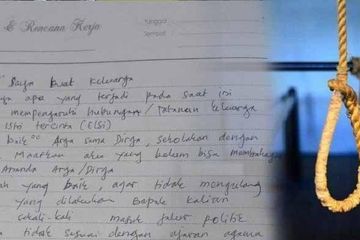 & Rencana Kerja
Tanggal
Tempat
Saya buat keluarga
apa yang terjadi pada saat ini
mempengaruhi hubungan / tatanan keluarga
Istri tercinta (ELSI)
baik Arga sama Dirga, sekolahkan dengan
Maafkan aku yang belum bisa membahagia
Ananda Arga / Dirga
yang baik, agar tidak mengulang
yang dilakukan Bapak kalian
sekali-kali masuk jalur politik
tidak sesuai dengan ajaran agama